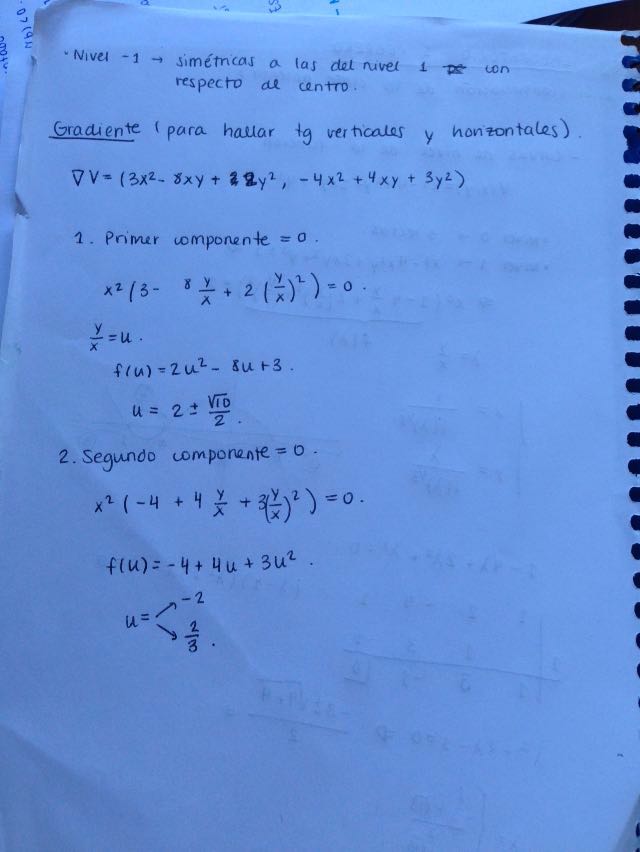 · Nivel -1 → simétricas a las del nivel 1 con
respecto de centro.
Gradiente (para hallar tg verticales y horizontales).
∇V = (3x² - 8xy + 2y², -4x² + 4xy + 3y²)
1. Primer componente = 0.
x² (3 - 8 y/x + 2 (y/x)²) = 0.
y/x = u.
f(u) = 2u² - 8u + 3.
u = 2 ± √10/2.
2. Segundo componente = 0.
x² (-4 + 4 y/x + 3(y/x)²) = 0.
f(u) = -4 + 4u + 3u².
u = ↗ -2
↘ 2/3.